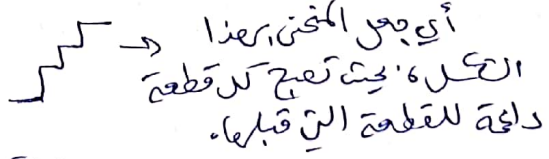 أي جعل المنحنى بهذا
الشكل، بحيث تصبح كل قطعة
داعمة للقطعة التي قبلها.